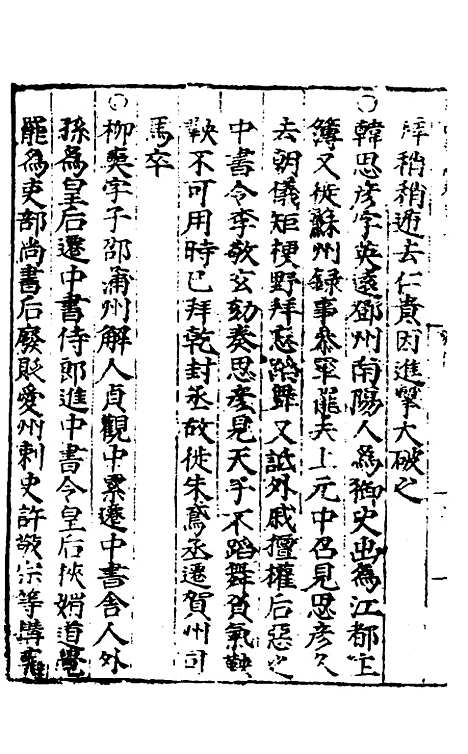 稍稍遁去仁貴因進擊大破之
○韓思彥字英遠鄧州南陽人為御史出為江都主
簿又徙蘇州録事叅軍罷去上元中召見思彥久
去朝儀矩梗野拜忘蹈舞又詆外戚擅權后惡之
中書令李敬玄劾奏思彥見天子不蹈舞負氣鞅
鞅不可用時已拜乾封丞故徙朱鳶丞遷賀州司
馬卒
○柳奭字子邵蒲州解人貞觀中累遷中書舍人外
孫為皇后遷中書侍郎進中書令皇后挾媚道覺
罷為吏部尚書后廢貶愛州刺史許敬宗等搆奭